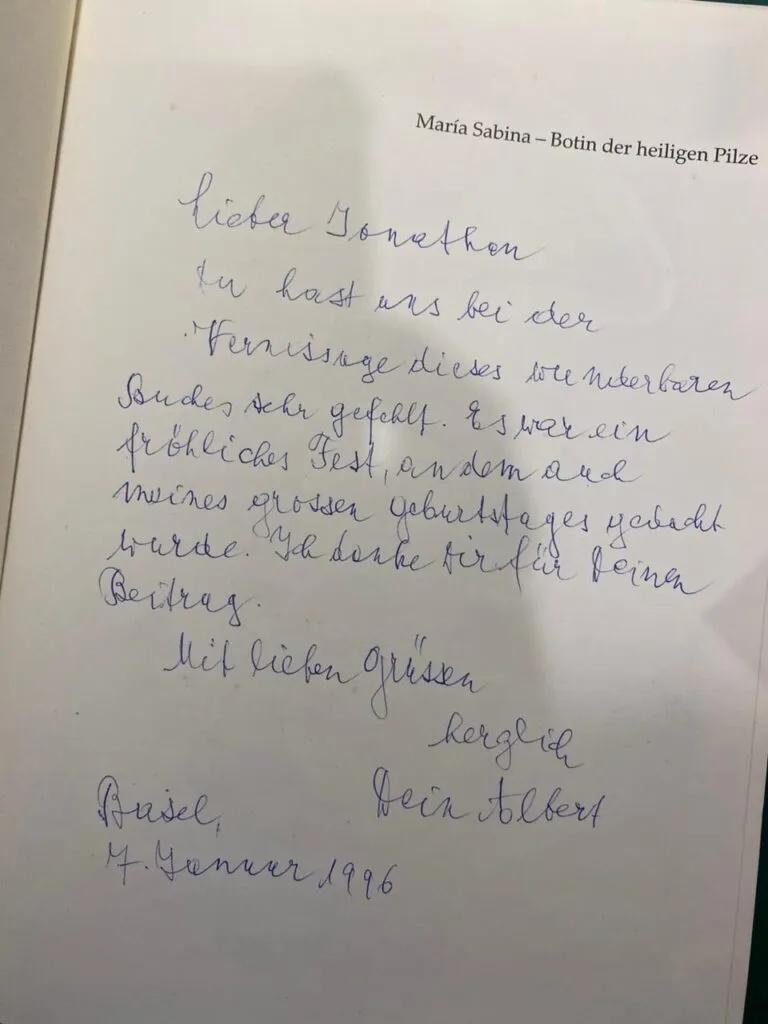 María Sabina – Botin der heiligen Pilze
Lieber Jonathan
Du hast uns bei der
Vernissage dieses wunderbaren
Buches sehr gefehlt. Es war ein
fröhliches Fest, an dem auch
meines grossen Geburtstages gedacht
wurde. Ich danke Dir für Deinen
Beitrag.
Mit lieben Grüssen
herzlich
Dein Albert
Basel,
7. Januar 1996